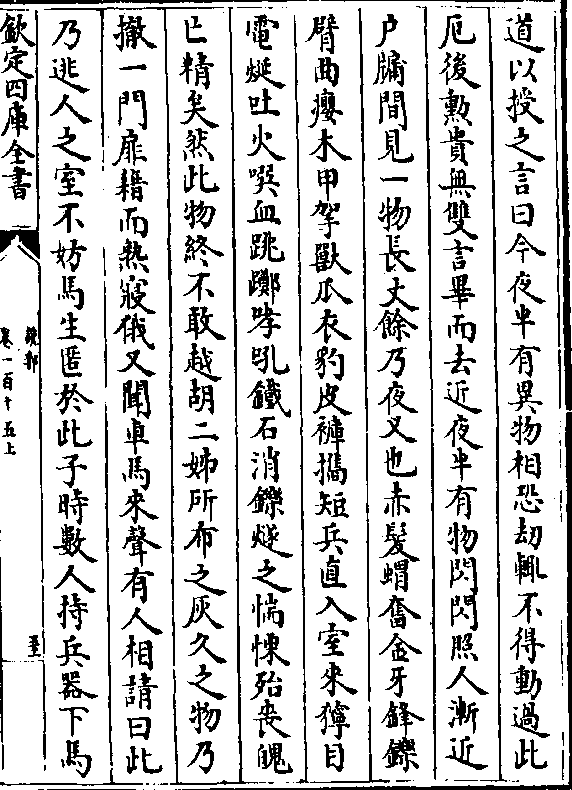 道以授之言曰今夜半有異物相恐刼輒不得動過此
厄後勲貴無雙言畢而去近夜半有物閃閃照人漸近
户牖間見一物長丈餘乃夜叉也赤髮蝟奮金牙鋒鑠
臂曲癭木甲拏獸爪衣豹皮褲攜短兵直入室來獰目
電燄吐火噀血跳躑哮吼鐵石消鑠燧之惴慄殆喪魄
亡精矣然此物終不敢越胡二姊所布之灰久之物乃
撤一門扉藉而熟寢俄又聞車馬來聲有人相請曰此
乃逃人之室不妨馬生匿於此子時數人持兵器下馬
欽定四庫全書
說郛
卷一百十五上